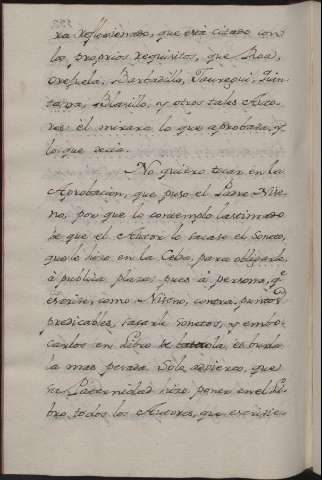 ra reflexionado, que està citado con
los proprios requisitos, que Roa,
Orejuela, Barbadillo, Jauregui, Quin-
tana, Blasillo, y otros tales Auto-
res èl mirara lo que aprobaba, y
lo que decia.
No quiero tocar en la
Aprobacion, que puso el Padre Nise-
no, por que lo contemplo lastimado
de que el Autor le sacase el Soneto,
que le hizo en la Celda, para obligarlo,
à publica plaza; pues à persona, qe
escrive, como Niseno, contra puntos
predicables, sacarle sonetos, y embo-
carlos en Libro de es burla
la mas pesada. Solo advierto, que
su Paternidad hizo poner en el Li-
bro todos los Autores, que escrivie-